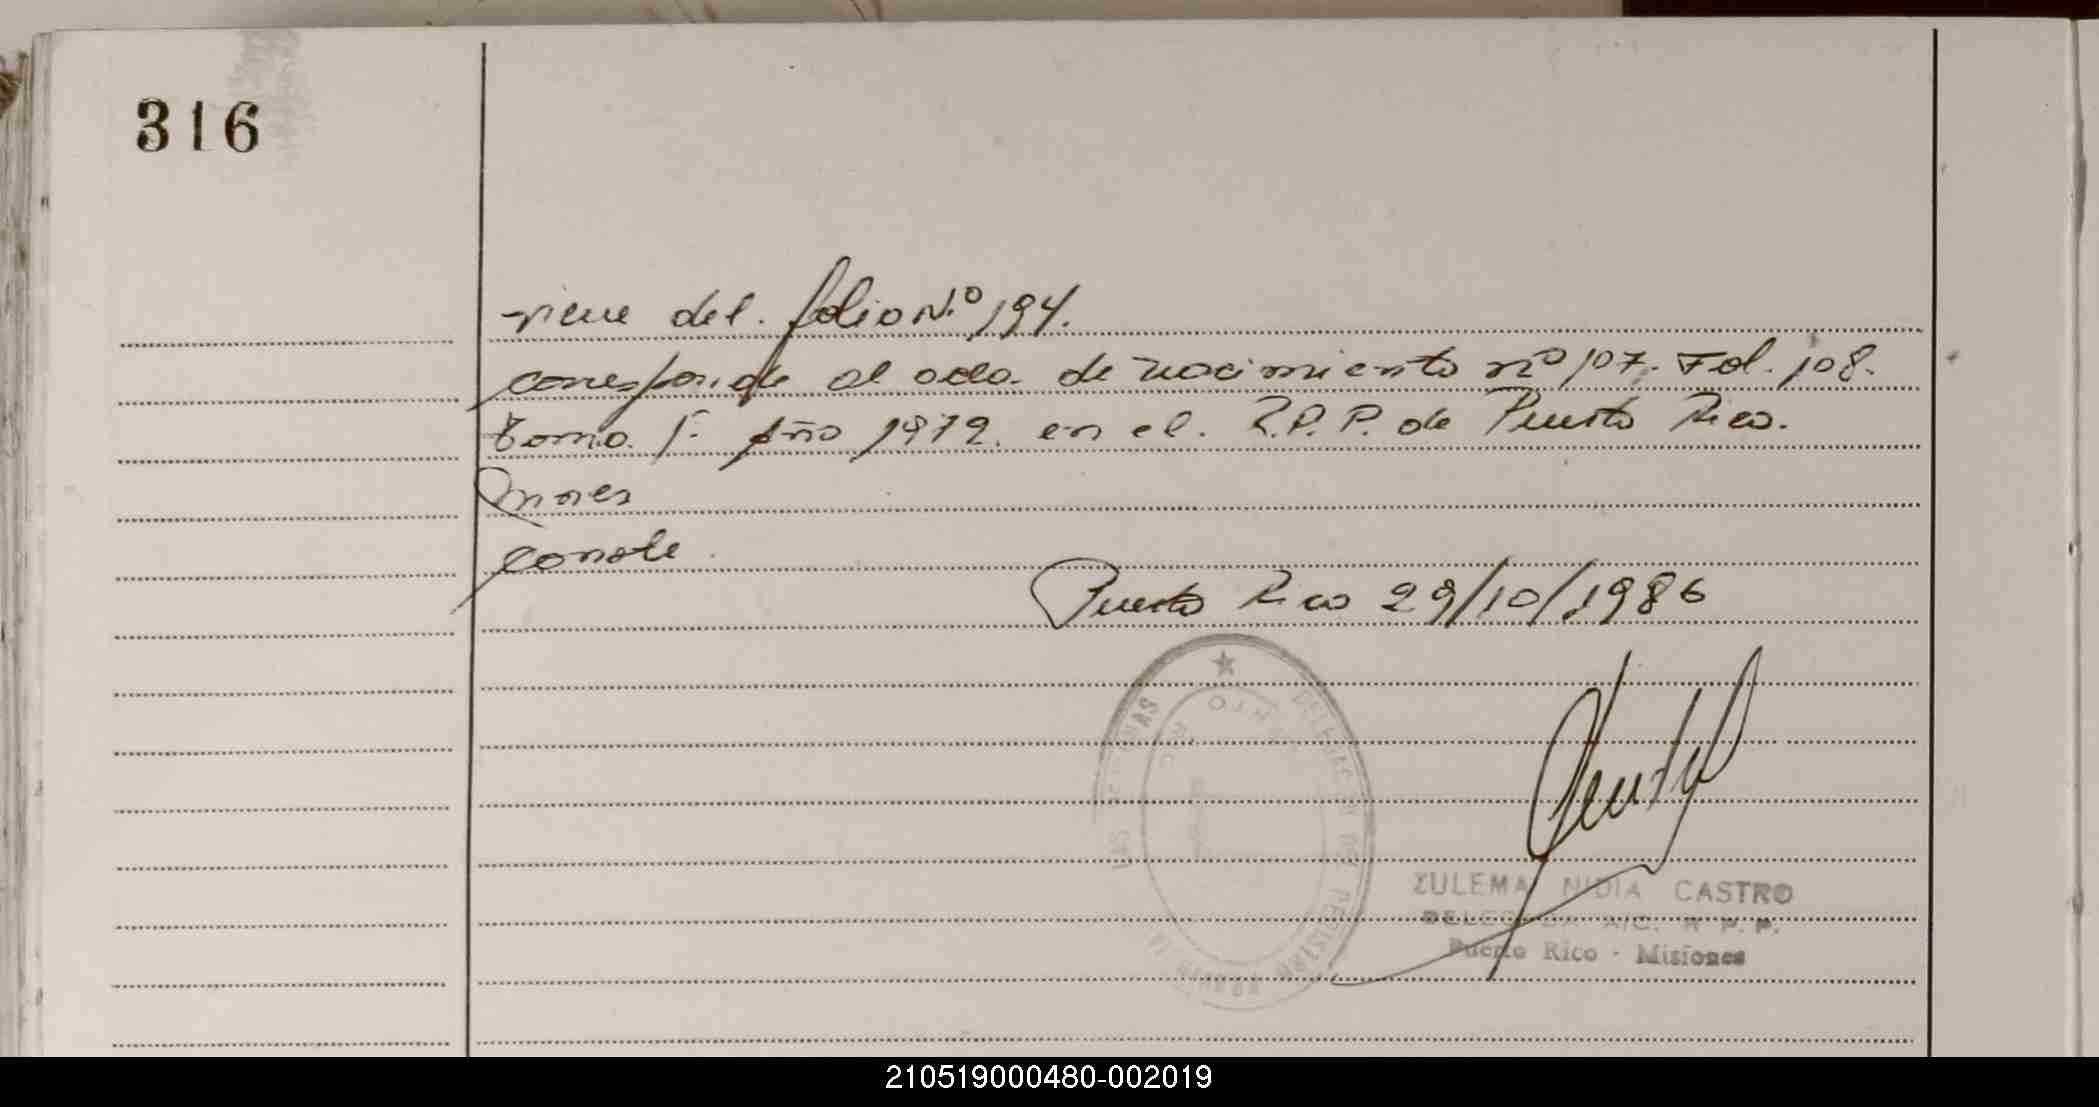 316
viene del. folio N.º 194.
corresponde al acta de nacimiento nº 107. Fol. 108.
tomo I. Año 1972. en el. R.P.P. de Puerto Rico.
Mnes
conste.
Puerto Rico 29/10/1986
PTO RICO
ZULEMA NIDIA CASTRO
DELEGADA A/C. R P. P.
Puerto Rico - Misiones
210519000480-002019